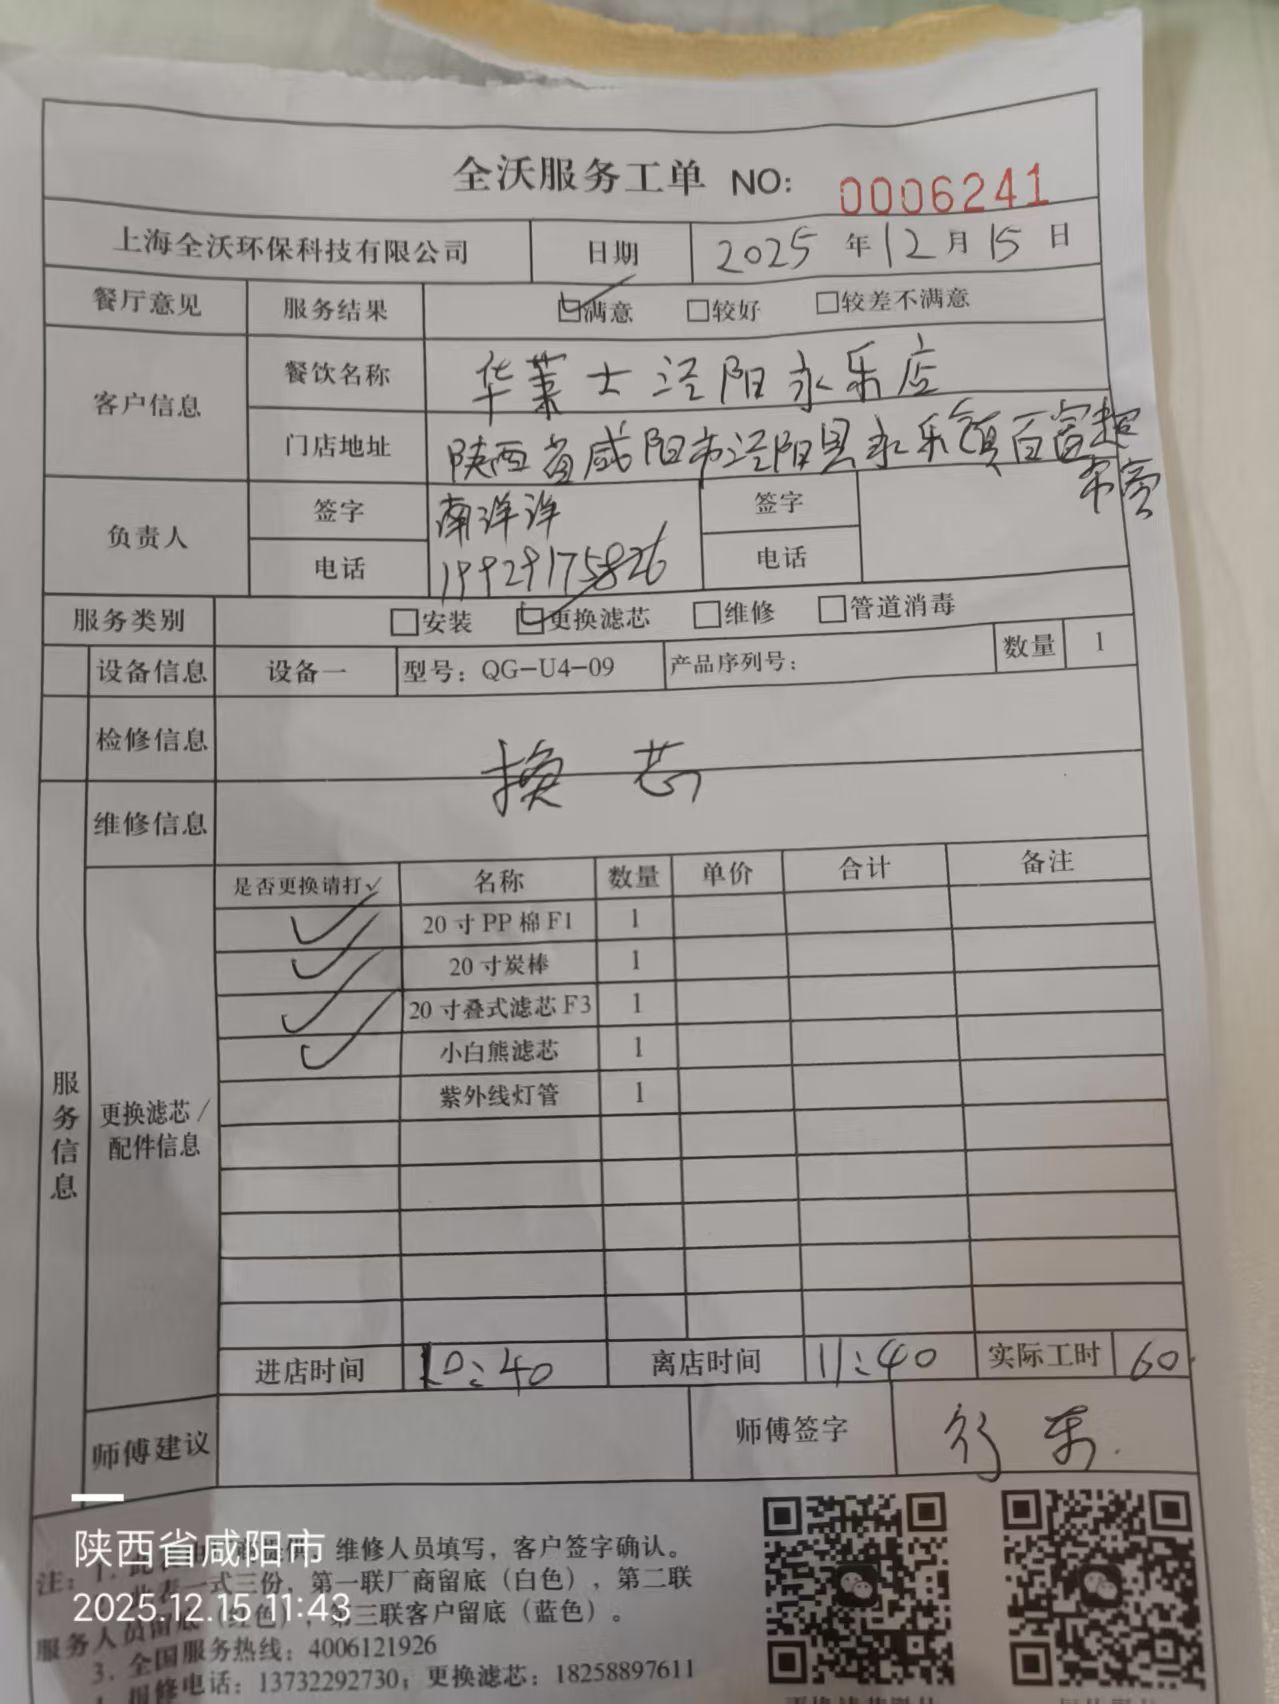 全沃服务工单 NO: 0006241
上海全沃环保科技有限公司 日期 2025年12月15日
餐厅意见 服务结果 ☑满意 □较好 □较差不满意
客户信息 餐饮名称 华莱士泾阳永乐店
门店地址 陕西省咸阳市泾阳县永乐镇百富超
市旁
负责人 签字 南洋洋 签字
电话 19929175826 电话
服务类别 □安装 ☑更换滤芯 □维修 □管道消毒
设备信息 设备一 型号：QG-U4-09 产品序列号： 数量 1
检修信息
换芯
维修信息
服务信息
更换滤芯/
配件信息
是否更换请打✓ 名称 数量 单价 合计 备注
✓ 20寸PP棉F1 1
✓ 20寸炭棒 1
✓ 20寸叠式滤芯F3 1
✓ 小白熊滤芯 1
紫外线灯管 1
进店时间 10:40 离店时间 11:40 实际工时 60
师傅建议 师傅签字
陕西省咸阳市
2025.12.15 11:43
注：1. 维修人员填写，客户签字确认。
一式三份，第一联厂商留底（白色），第二联
服务人员留底（红色），第三联客户留底（蓝色）。
3. 全国服务热线：4006121926
报修电话：13732292730；更换滤芯：18258897611